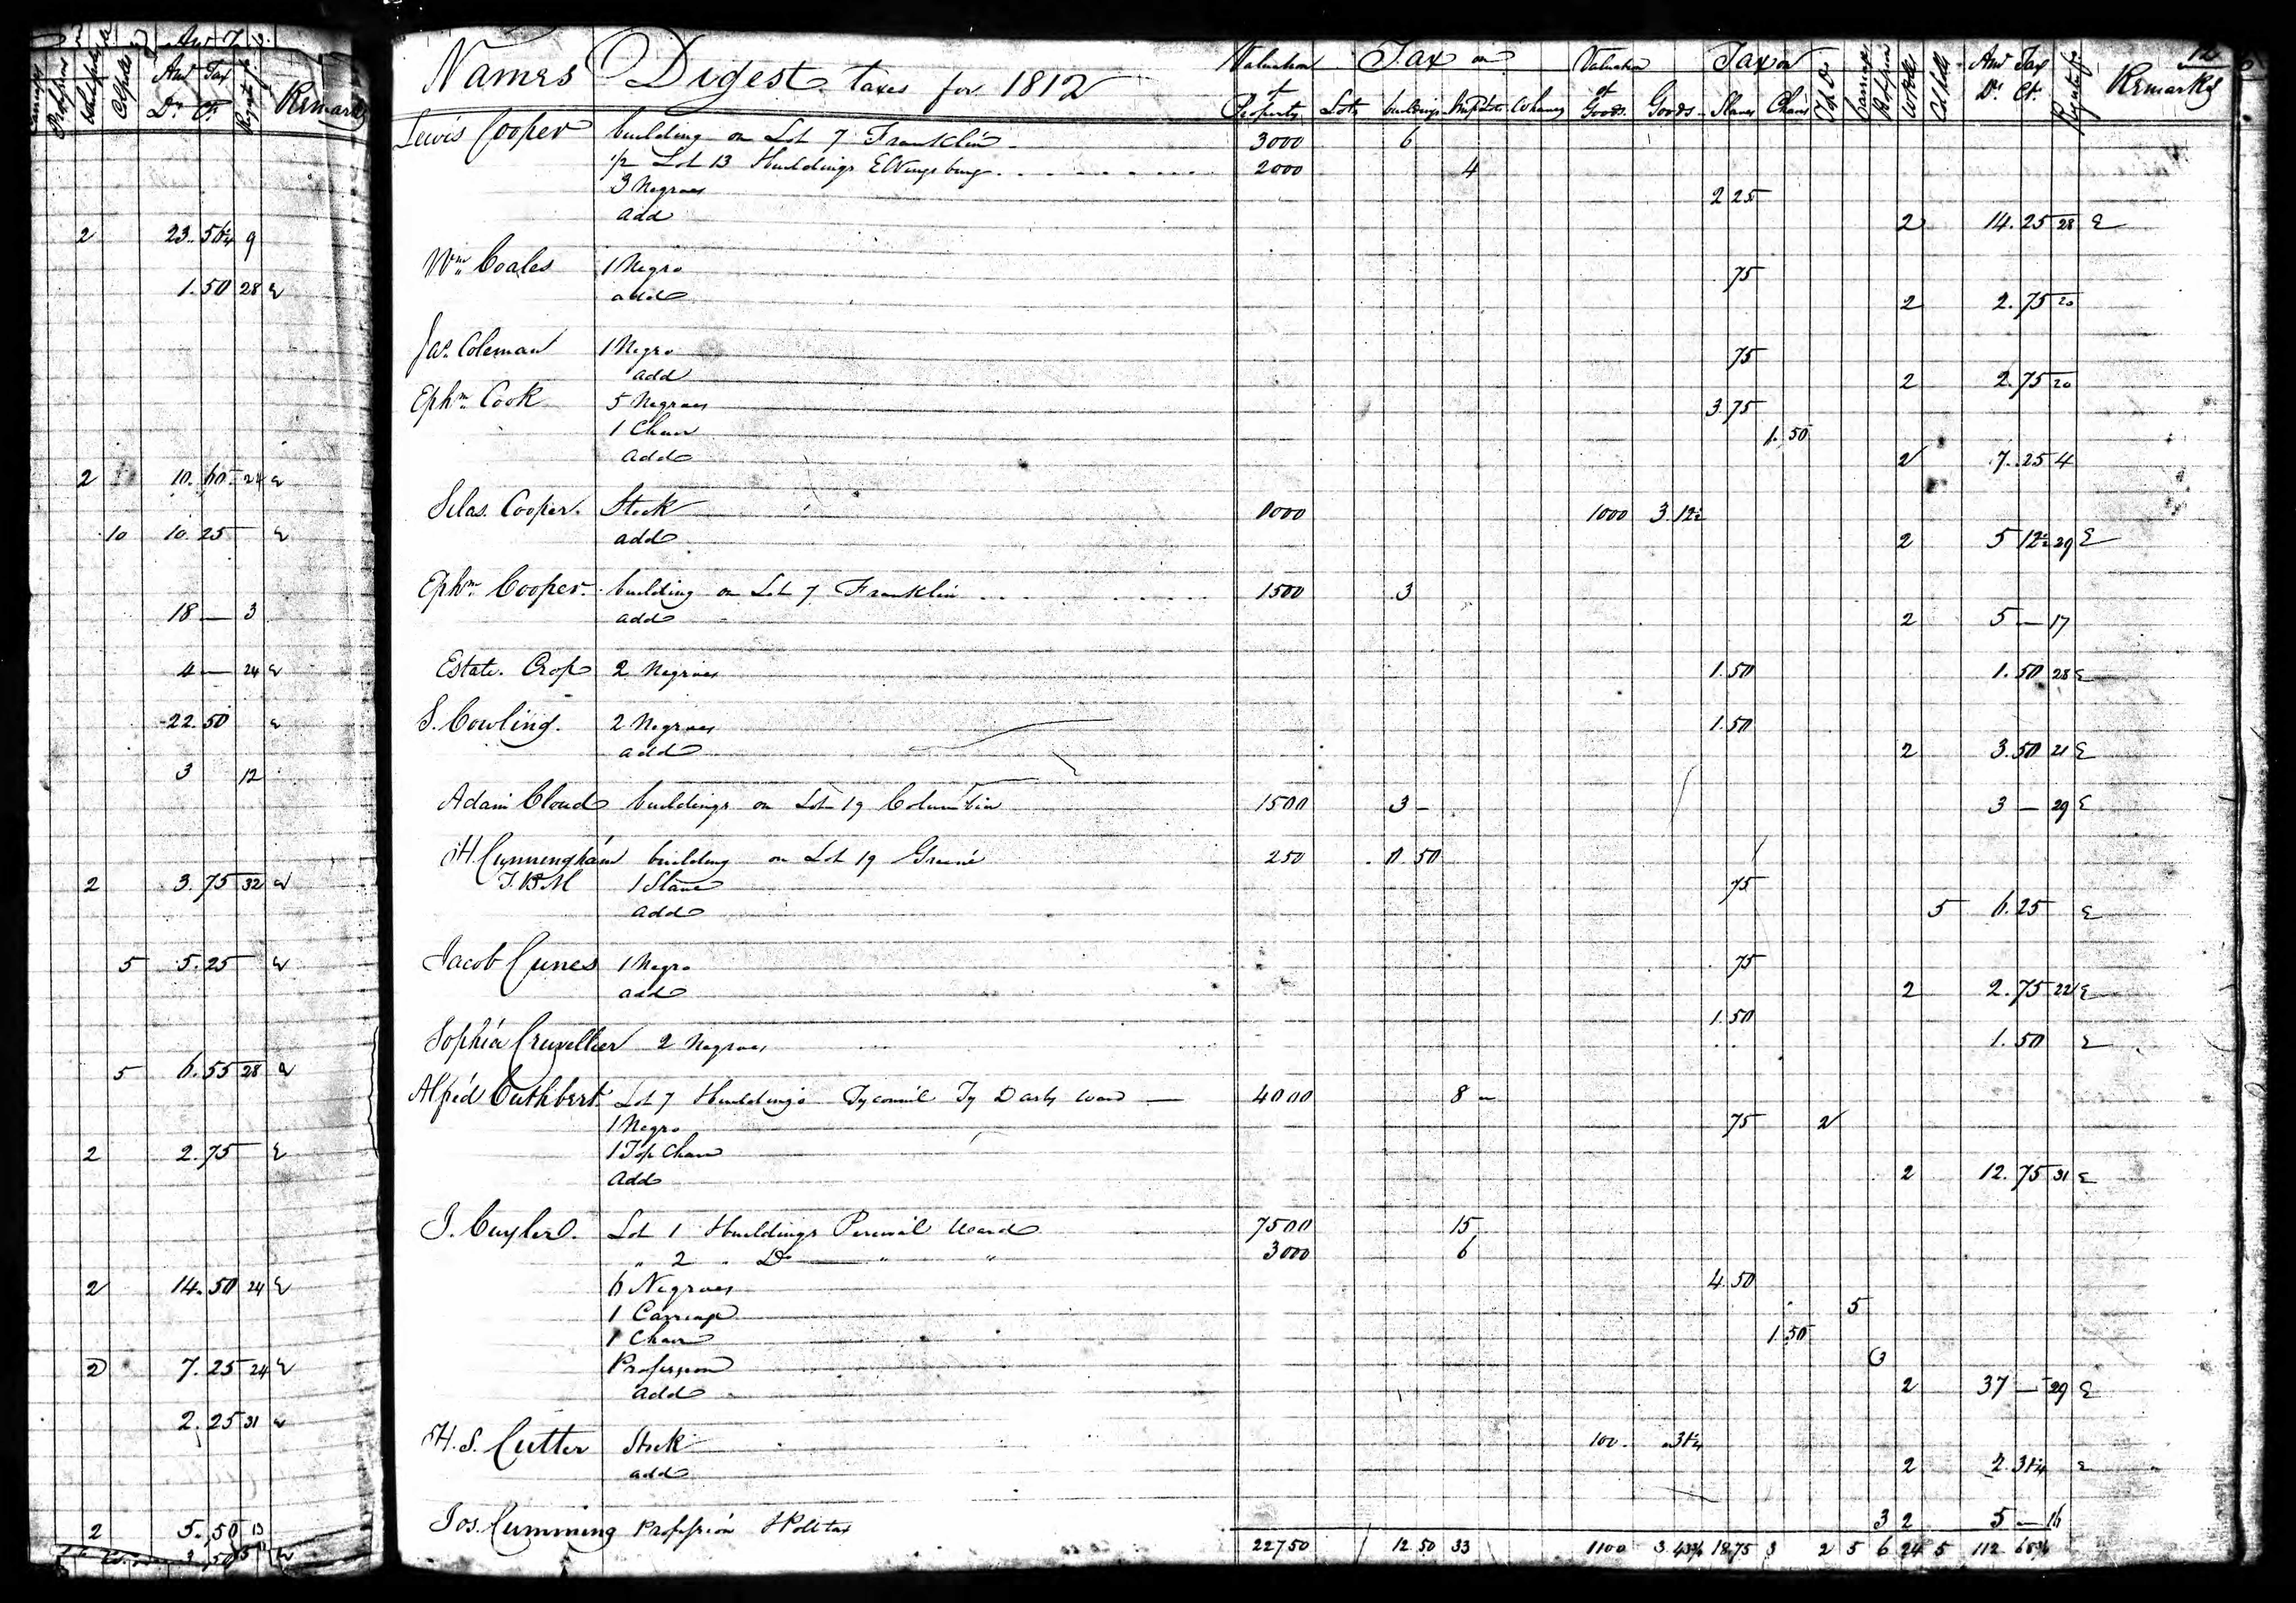 Amt Tax
Dr. Ct.
Remarks
2 23. 56¼ 9
1. 50 28 E
2 10. 60 24 E
10 10. 25 E
18 — 3
4 — 24 E
22. 50 E
3 12
2 3. 75 32 E
5 5. 25 E
5 6. 55 28 E
2 2. 75 E
2 14. 50 24 E
2 7. 25 24 E
2. 25 31 E
2 5. 50 13
Names Digest taxes for 1812
Valuation of Property Tax on Lots buildings Imp Lots Wharves Valuation of Goods Tax on Goods Slaves Chairs Top Do Carriage Profession W Polls Cl Polls Amt Tax Dr. Ct. Remarks
Lewis Cooper building on Lot 7 Franklin 3000 6
½ Lot 13 & buildings Ewingsburg 2000 4
3 Negroes 2 25
add 2 14. 25 28 E
Wm Coales 1 Negro 75
add 2 2. 75 20
Jas. Coleman 1 Negro 75
add 2 2. 75 20
Ephm Cook 5 Negroes 3. 75
1 Chair 1. 50
add 2 7. 25 4
Silas Cooper Stock 1000 1000 3. 12½
add 2 5 12½ 29 E
Ephm Cooper building on Lot 7 Franklin 1500 3
add 2 5 — 17
Estate Crop 2 Negroes 1. 50 1. 50 28 E
S. Cowling. 2 Negroes 1. 50
add 2 3. 50 21 E
Adam Cloud buildings on Lot 19 Columbia 1500 3 — 3 — 29 E
H. Cunningham building on Lot 19 Greene 250 0. 50
1 Slave 75
add 5 6. 25 E
Jacob Cunes 1 Negro 75
add 2 2. 75 22 E
1. 50
Sophia Cruvellier 2 Negroes 1. 50 E
Alfred Cuthbert Lot 7 & buildings Tyconnel Ty Darby ward — 4000 8
1 Negro 75 2
1 Top Chair
add 2 12. 75 31 E
J. Cuyler. Lot 1 & buildings Percival Ward 7500 15
" 2 " Do " " 3000 6
6 Negroes 4. 50
1 Carriage 5
1 Chair 1. 50
Profession 3
add 2 37 — 29 E
H. S. Cutter Stock 100. 31¼
add 2 2. 31¼ E
Jos. Cumming Profession & Poll tax 3 2 5 — 16
22750 12 50 33 1100 3. 43¾ 18.75 3 2 5 6 24 5 112 68¾